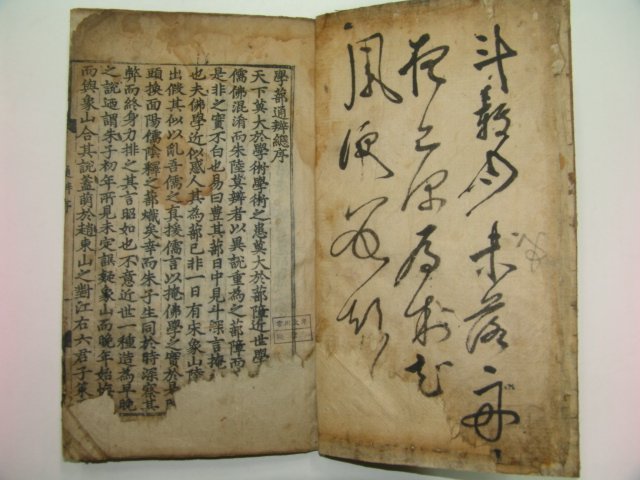 斗轉月未落舟行
夜已深有村知
風便數聲砧
學蔀通辨總序
天下莫大於學術學術之患莫大於蔀障近世學
儒佛混淆而朱陸莫辨者以異說重為之蔀障而
是非之實不白也易曰豐其蔀日中見斗深言掩
也夫佛學近似惑人其為蔀已非一日有宋象山陸
出假其似以亂吾儒之真援儒言以掩佛學之實於是
頭換面陽儒陰釋之蔀熾矣幸而朱子生同於時深察其
弊而終身力排之其言昭如也不意近世一種造為早晚
之說迺謂朱子初年所見未定誤疑象山而晚年始悔
而與象山合其說蓋萌於趙東山之對江右六君子策